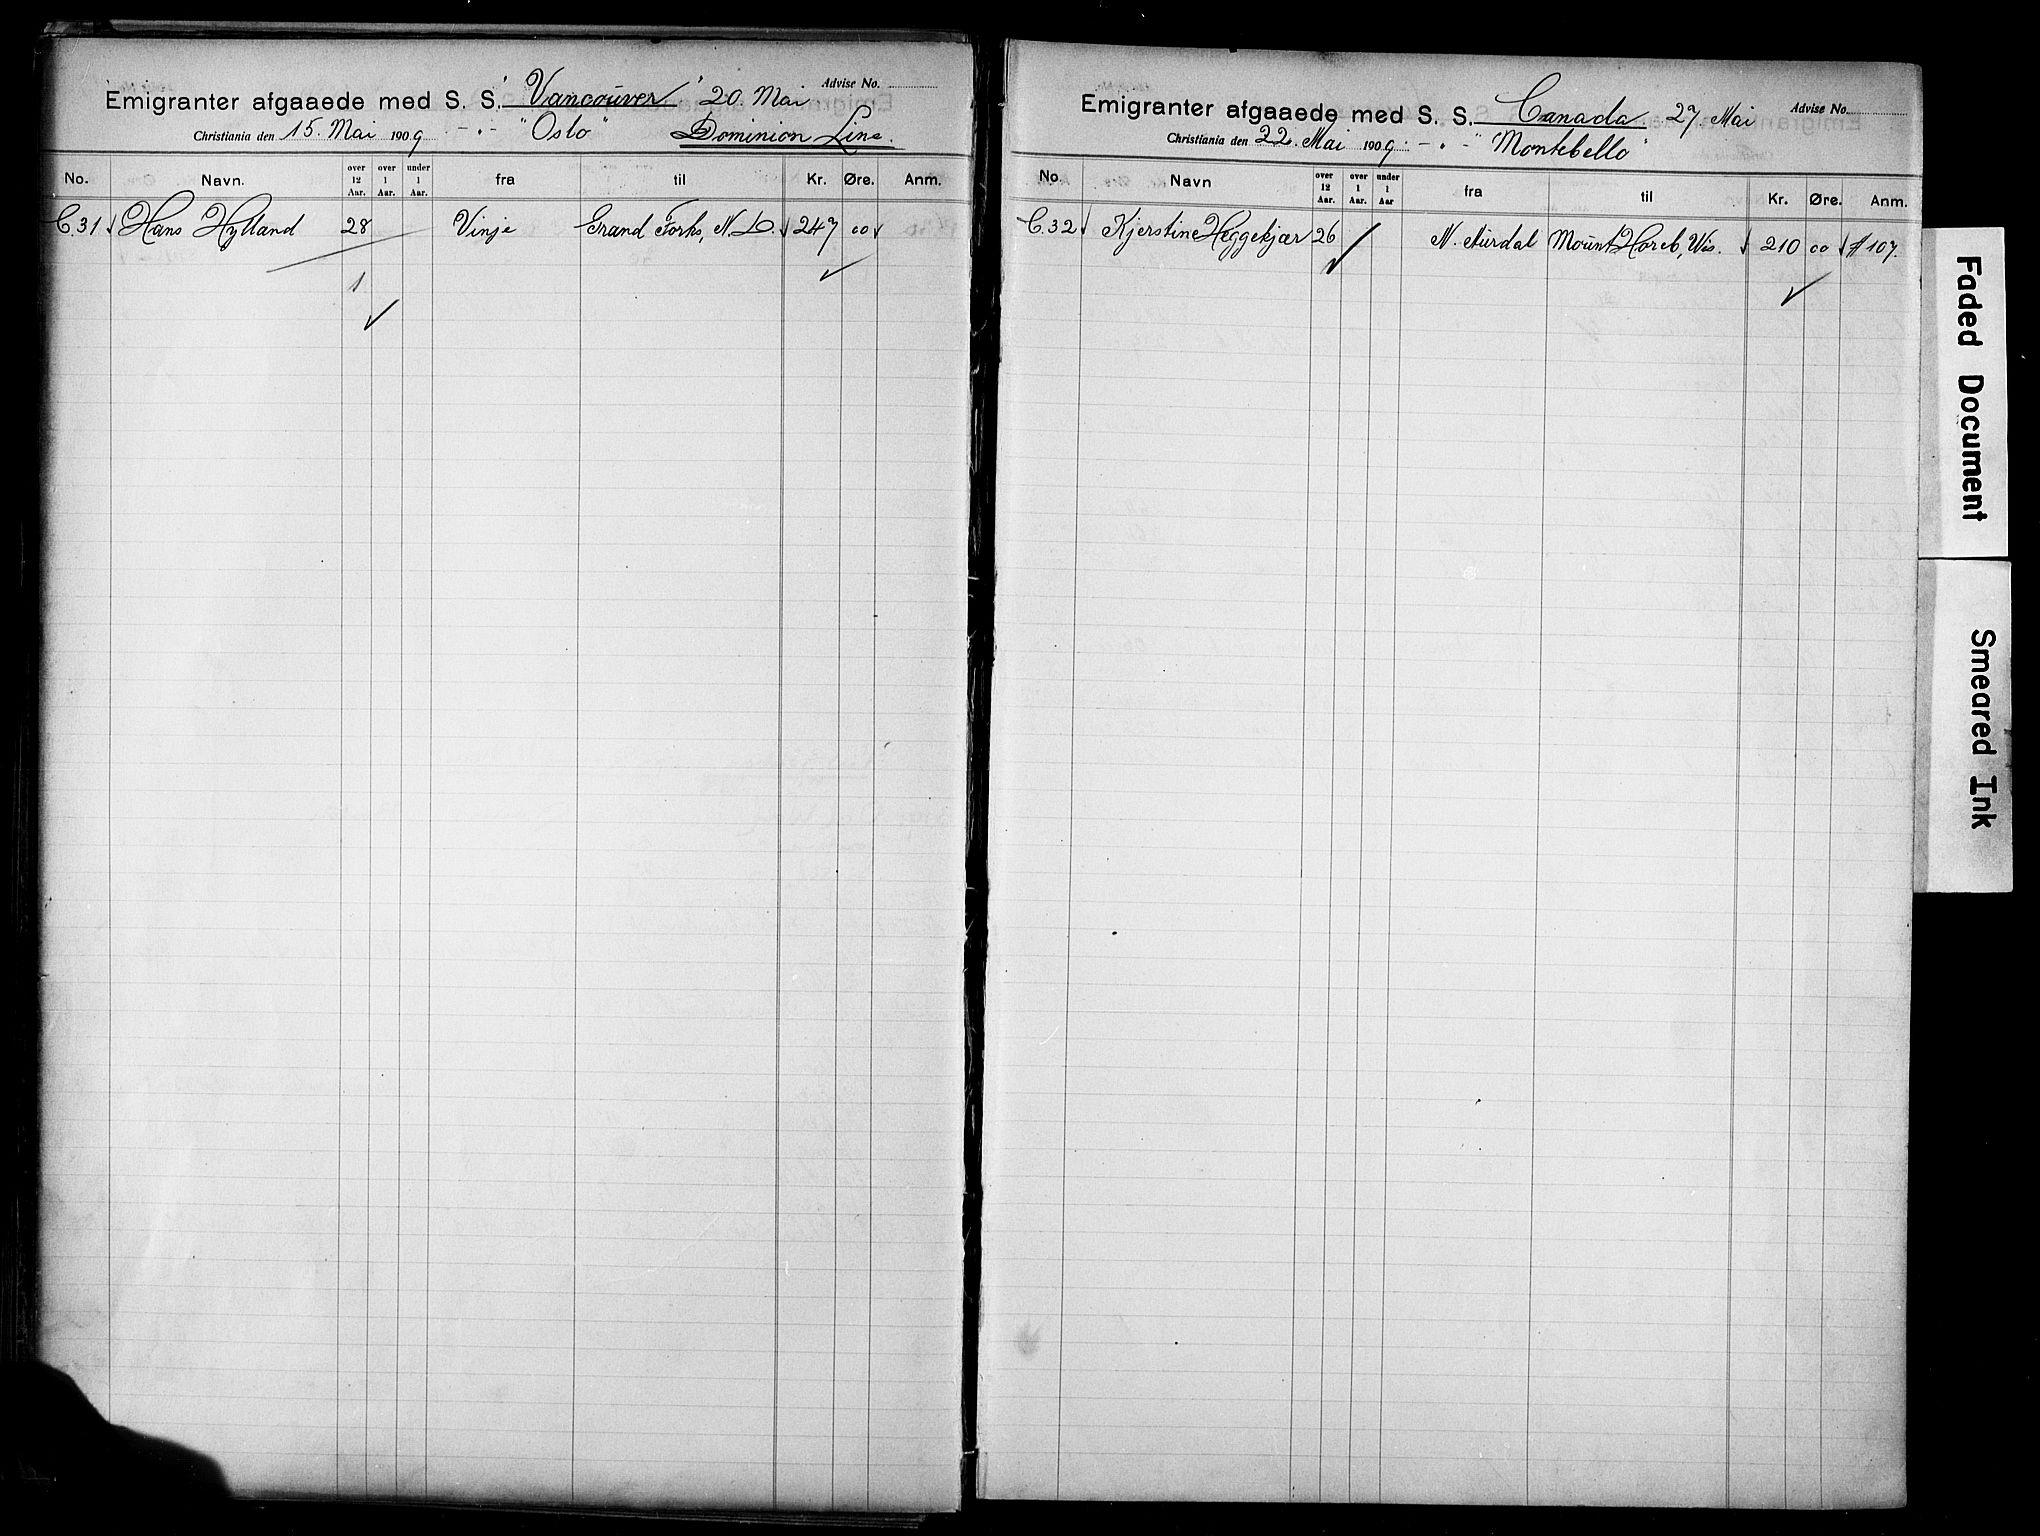 Emigranter afgaaede med S. S. "Vancouver" 20. Mai Advise No.
Christiania den 15. Mai 1909 - " - "Oslo" Dominion Line.
No. Navn. over 12 Aar. over 1 Aar. under 1 Aar. fra til Kr. Øre. Anm.
C.31 Hans Hylland 28 Vinje Grand Forks, N. D. 247 00
1
Emigranter afgaaede med S. S. Canada 27 Mai Advise No.
Christiania den 22. Mai 1909. - " - "Montebello"
No. Navn over 12 Aar. over 1 Aar. under 1 Aar fra til Kr. Øre. Anm.
C.32 Kjerstine Heggekjær 26 N. Aurdal Mount Horeb, Wis. 210 00 # 107.
Faded Document
Smeared Ink